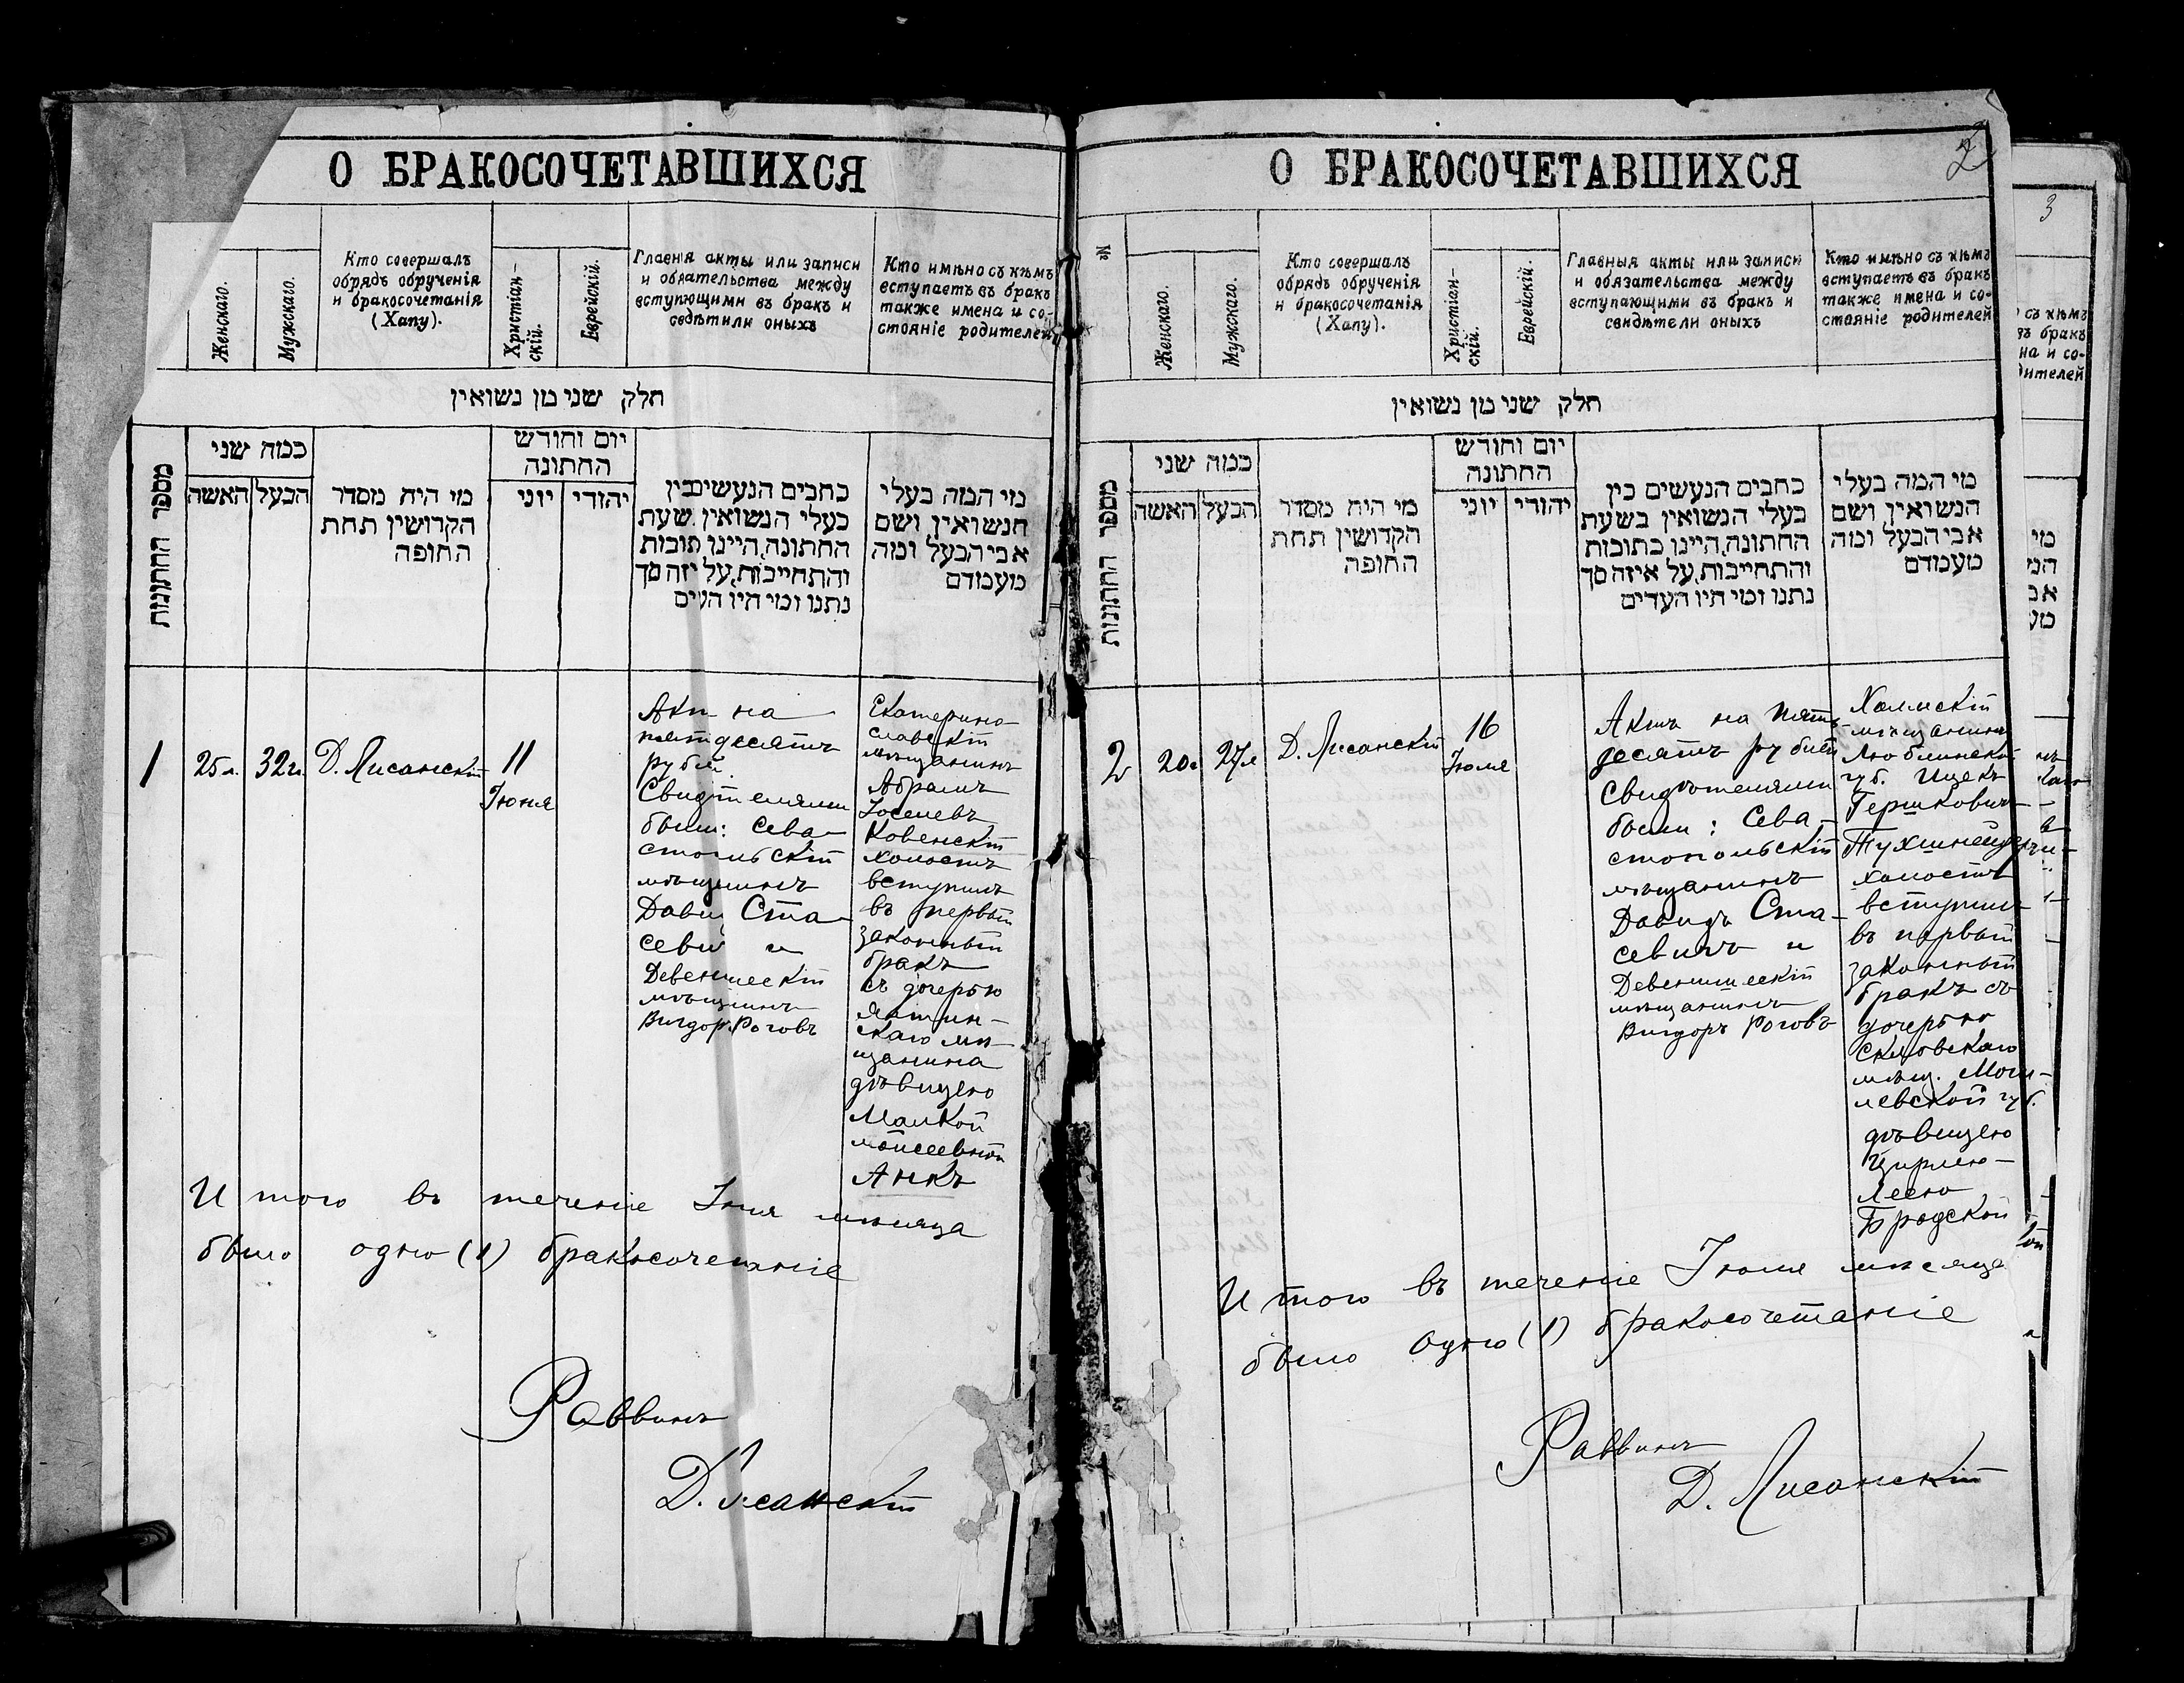 О БРАКОСОЧЕТАВШИХСЯ
Женскаго.
Мужскаго.
Кто совершалъ
обрядъ обрученія
и бракосочетанія
(Хапу).
Христіан-
скій.
Еврейскій.
Главныя акты или записи
и обязательства между
вступающими въ бракъ и
свидѣтели оныхъ
Кто имѣно съ кѣмъ
вступаетъ въ бракъ
также имена и со-
стояніе родителей
חלק שני מן נשואין
מספר החתונות
כמה שני
האשה
הבעל
מי היה מסדר
הקדושין תחת
החופה
יום וחודש
החתונה
יוני
יהודי
כתבים הנעשים בין
בעלי הנשואין שעת
החתונה היינו
והתחייבות על
נתנו ומי היו
מי המה בעלי
הנשואין ושם
אבי הבעל ומה
מעמדם
1
25 л.
32 г.
Д. Лисанскій
11
Іюня
Актъ на
пятьдесятъ
рублей.
Свидѣтелями
были: Сева-
стопольскій
мѣщанинъ
Давид Ста-
севич и
Девенишескій
мѣщанинъ
Вигдоръ Роговъ
Екатерино-
славскій
мѣщанинъ
Абрамъ
Іоселевъ
Ковенскій
холостъ
вступилъ
въ первый
законный
бракъ
съ дочерью
Ялтин-
скаго мѣ-
щанина
дѣвицею
Малкой
Мойсеевной
Анкъ
Итого въ теченіе Іюня мѣсяца
было одно (1) бракосочетаніе
Раввинъ
Д. Лисанскій
2
О БРАКОСОЧЕТАВШИХСЯ
№
Женскаго.
Мужскаго.
Кто совершалъ
обрядъ обрученія
и бракосочетанія
(Хапу).
Христіан-
скій.
Еврейскій.
Главныя акты или записи
и обязательства между
вступающими въ бракъ и
свидѣтели оныхъ
Кто имѣно съ кѣмъ
вступаетъ въ бракъ
также имена и со-
стояніе родителей
חלק שני מן נשואין
מספר החתונות
כמה שני
האשה
הבעל
מי היה מסדר
הקדושין תחת
החופה
יום וחודש
החתונה
יוני
יהודי
כתבים הנעשים בין
בעלי הנשואין בשעת
החתונה, היינו כתובות
והתחייבות, על איזה סך
נתנו ומי היו העדים
מי המה בעלי
הנשואין ושם
אבי הבעל ומה
מעמדם
2
20 г.
27 л.
Д. Лисанскій
16
Іюля
Актъ на пять-
десятъ рублей
Свидѣтелями
были: Сева-
стопольскій
мѣщанинъ
Давидъ Ста-
севичъ и
Девенишескій
мѣщанинъ
Вигдоръ Роговъ
Холмскій
мѣщанинъ
Люблинской
губ. Ицекъ
Гершковичъ
Тухшнейдеръ
холостъ
вступилъ
въ первый
законный
бракъ съ
дочерью
Скловскаго
мѣщ. Моги-
левской губ.
дѣвицею
Цирлею-
Леею
Бродской
Итого въ теченіе Іюля мѣсяца
было одно (1) бракосочетаніе
Раввинъ
Д. Лисанскій
3
съ кѣмъ
бракъ
на и со-
дителей